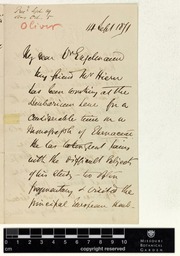 Oliver
11 Sept 1871
My dear Dr Engelmann
My friend Mr Hiern
has been working at the
Herbarium here for a
considerable time on a
Monograph of Ebenaceae
He has to long out
with the difficult subject
of his study — to often
fragmentary & visited the
principal European Herb.
MISSOURI
BOTANICAL
GARDEN